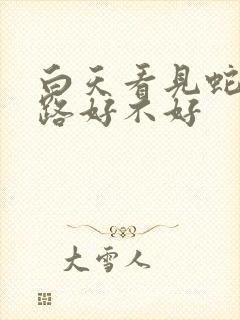 白天看見蛇
路好不好
大雪人